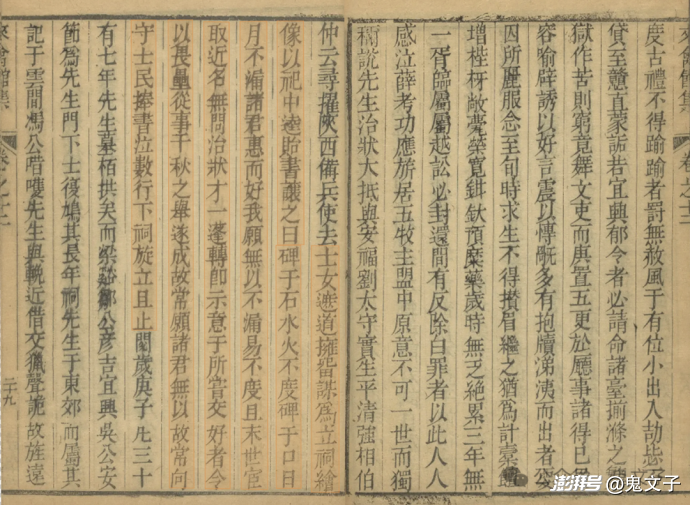 度古禮不得踰踰者罰無赦風于有位小出入劾
貸至贛直蒙詬若宜興郁令者必請命諸臺揃滌之
獄作苦則窮竟舞文吏而庚置五更於廳事諸得已
容喻辟誘以好言震以慱
多有抱牘涕洟而出者
因所麗服念至旬時求生不得攢眉繼之猶為計橐饘
增桎枒敞
寬鉗釱預糜藥歲時無乏絕累三年無
一胥師屬屬越訟必封還間有反除白罪者以此人人
感泣薛考功應旂居五牧主盟中原意不可一世而獨
稱說先生治狀大抵與安福劉太守實生平清強相伯
仲云尋擢陝西備兵使去士女遮道擁留謀為立祠繪
像以祀中逵貽書讓之曰碑于石水火不度碑于口日
月不漏諸君惠而好我願無以不漏易不度且末世宦
取近名無問治狀才一遷轉即示意于所睿交好者令
以畏壘從事千秋之舉遂成故常願諸君無以故常向
守士民捧書泣數行下祠旋立且止閱歲庚子凡三十
有七年先生墓栢拱矣而梁谿鄒公彥吉宜興吳公安
節為先生門下士復鳩其長年祠先生于東郊而屬其
記于雲間馮公階嘆先生與輓近借交獵聲詭故旌遠
來禽館集
卷之十二
二十九
來禽館集
卷之十二
澎湃号@鬼文子